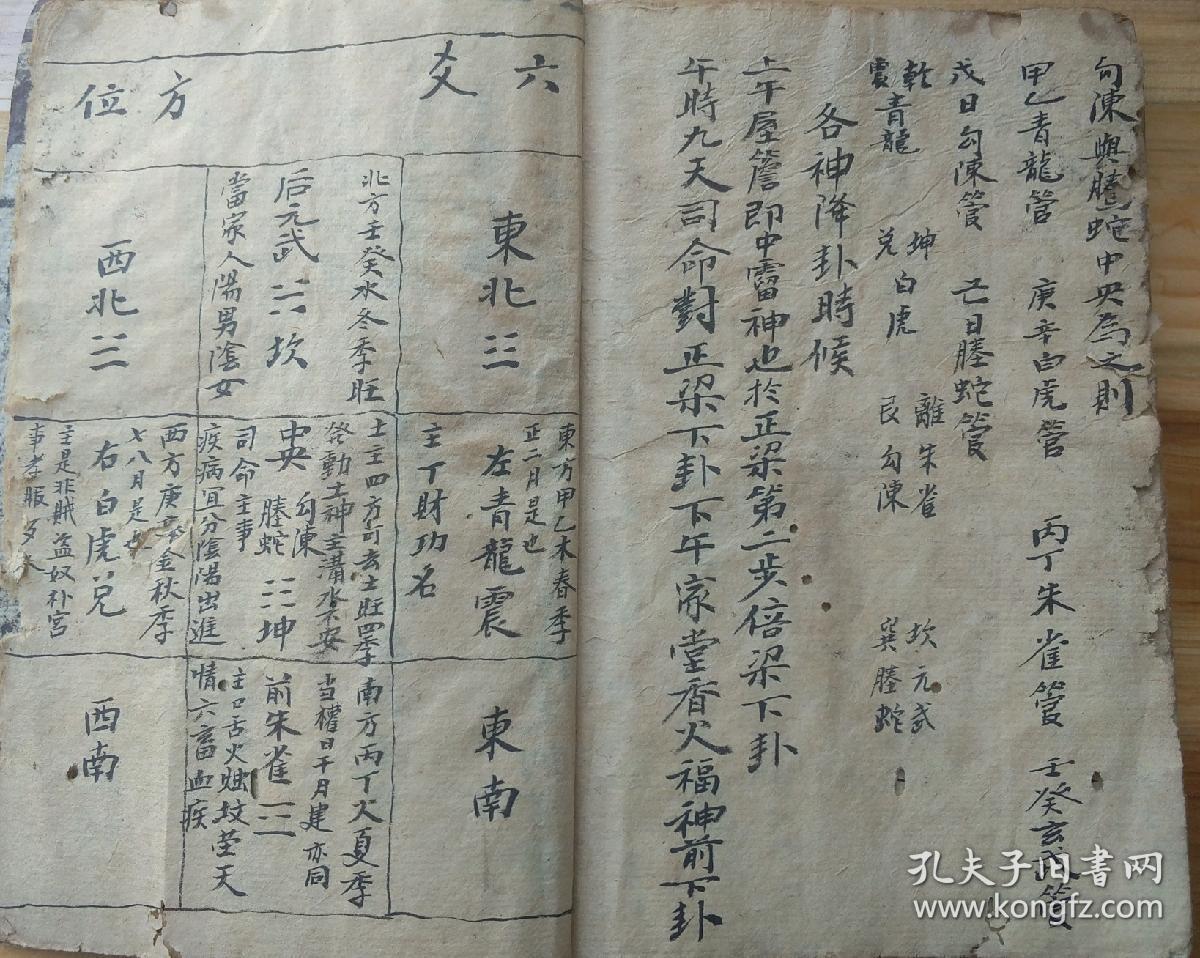 勾陳與螣蛇中央為之則
甲乙青龍管 庚辛白虎管 丙丁朱雀管 壬癸玄武管
戊日勾陳管 己日螣蛇管
乾震青龍 坤兌白虎 離朱雀 艮勾陳 坎元武 巽螣蛇
各神降卦時候
上午屋簷即中霤神也於正梁第二步倍梁下卦
午時九天司命對正梁下卦下午家堂香火福神前下卦
六爻方位
東北☳
東方甲乙木春季
正二月是也
左青龍震
主丁財功名
東南
北方壬癸水冬季旺
后元武☵坎
當家人陽男陰女
土主四方可去土旺四季
發動土神主溝水不安
中央 勾陳 螣蛇 ☷坤
司命主事
疾病宜分陰陽出進
南方丙丁火夏季
当權日干月建亦同
前朱雀☲
主口舌火燭坟茔天
情六畜血疾
西北☰
西方庚辛金秋季
七八月是也
右白虎兌
主是非賊盜奴朴宮
事孝服多
西南
孔夫子旧書网
www.kongfz.com